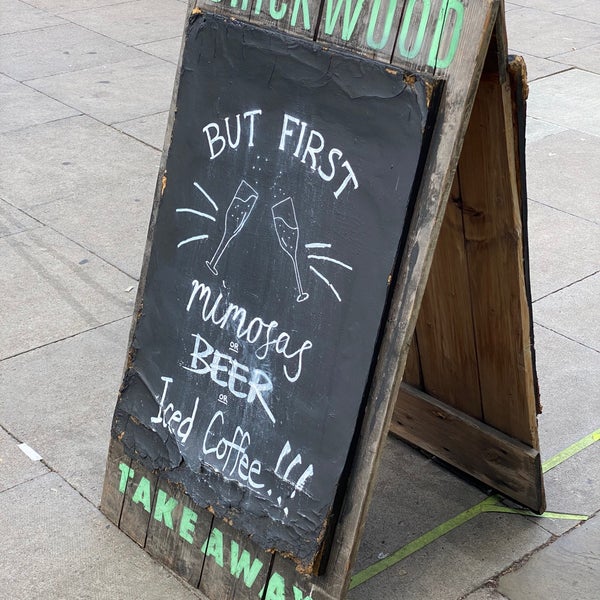 BUT FIRST
mimosas
OR
BEER
OR
Iced Coffee!!!
TAKE AWAY